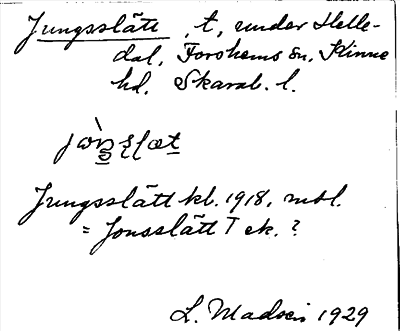 Jungsslätt, t, under Helle-
dal, Forshems sn, Kinne
hd, Skarab. l.
Jungsslätt kb. 1918, mbl.
= Jonsslätt T ek. ?
L. Madsén 1929